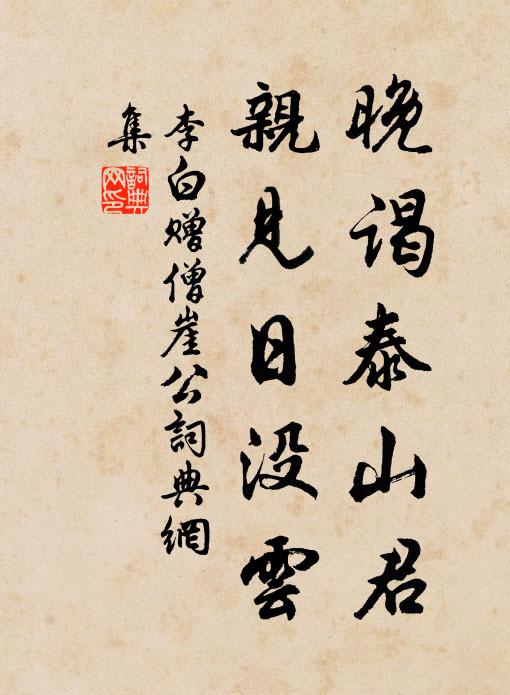 晚謁泰山君
親見日没雲
李白赠僧崖公詞典網
集
詞典
网印